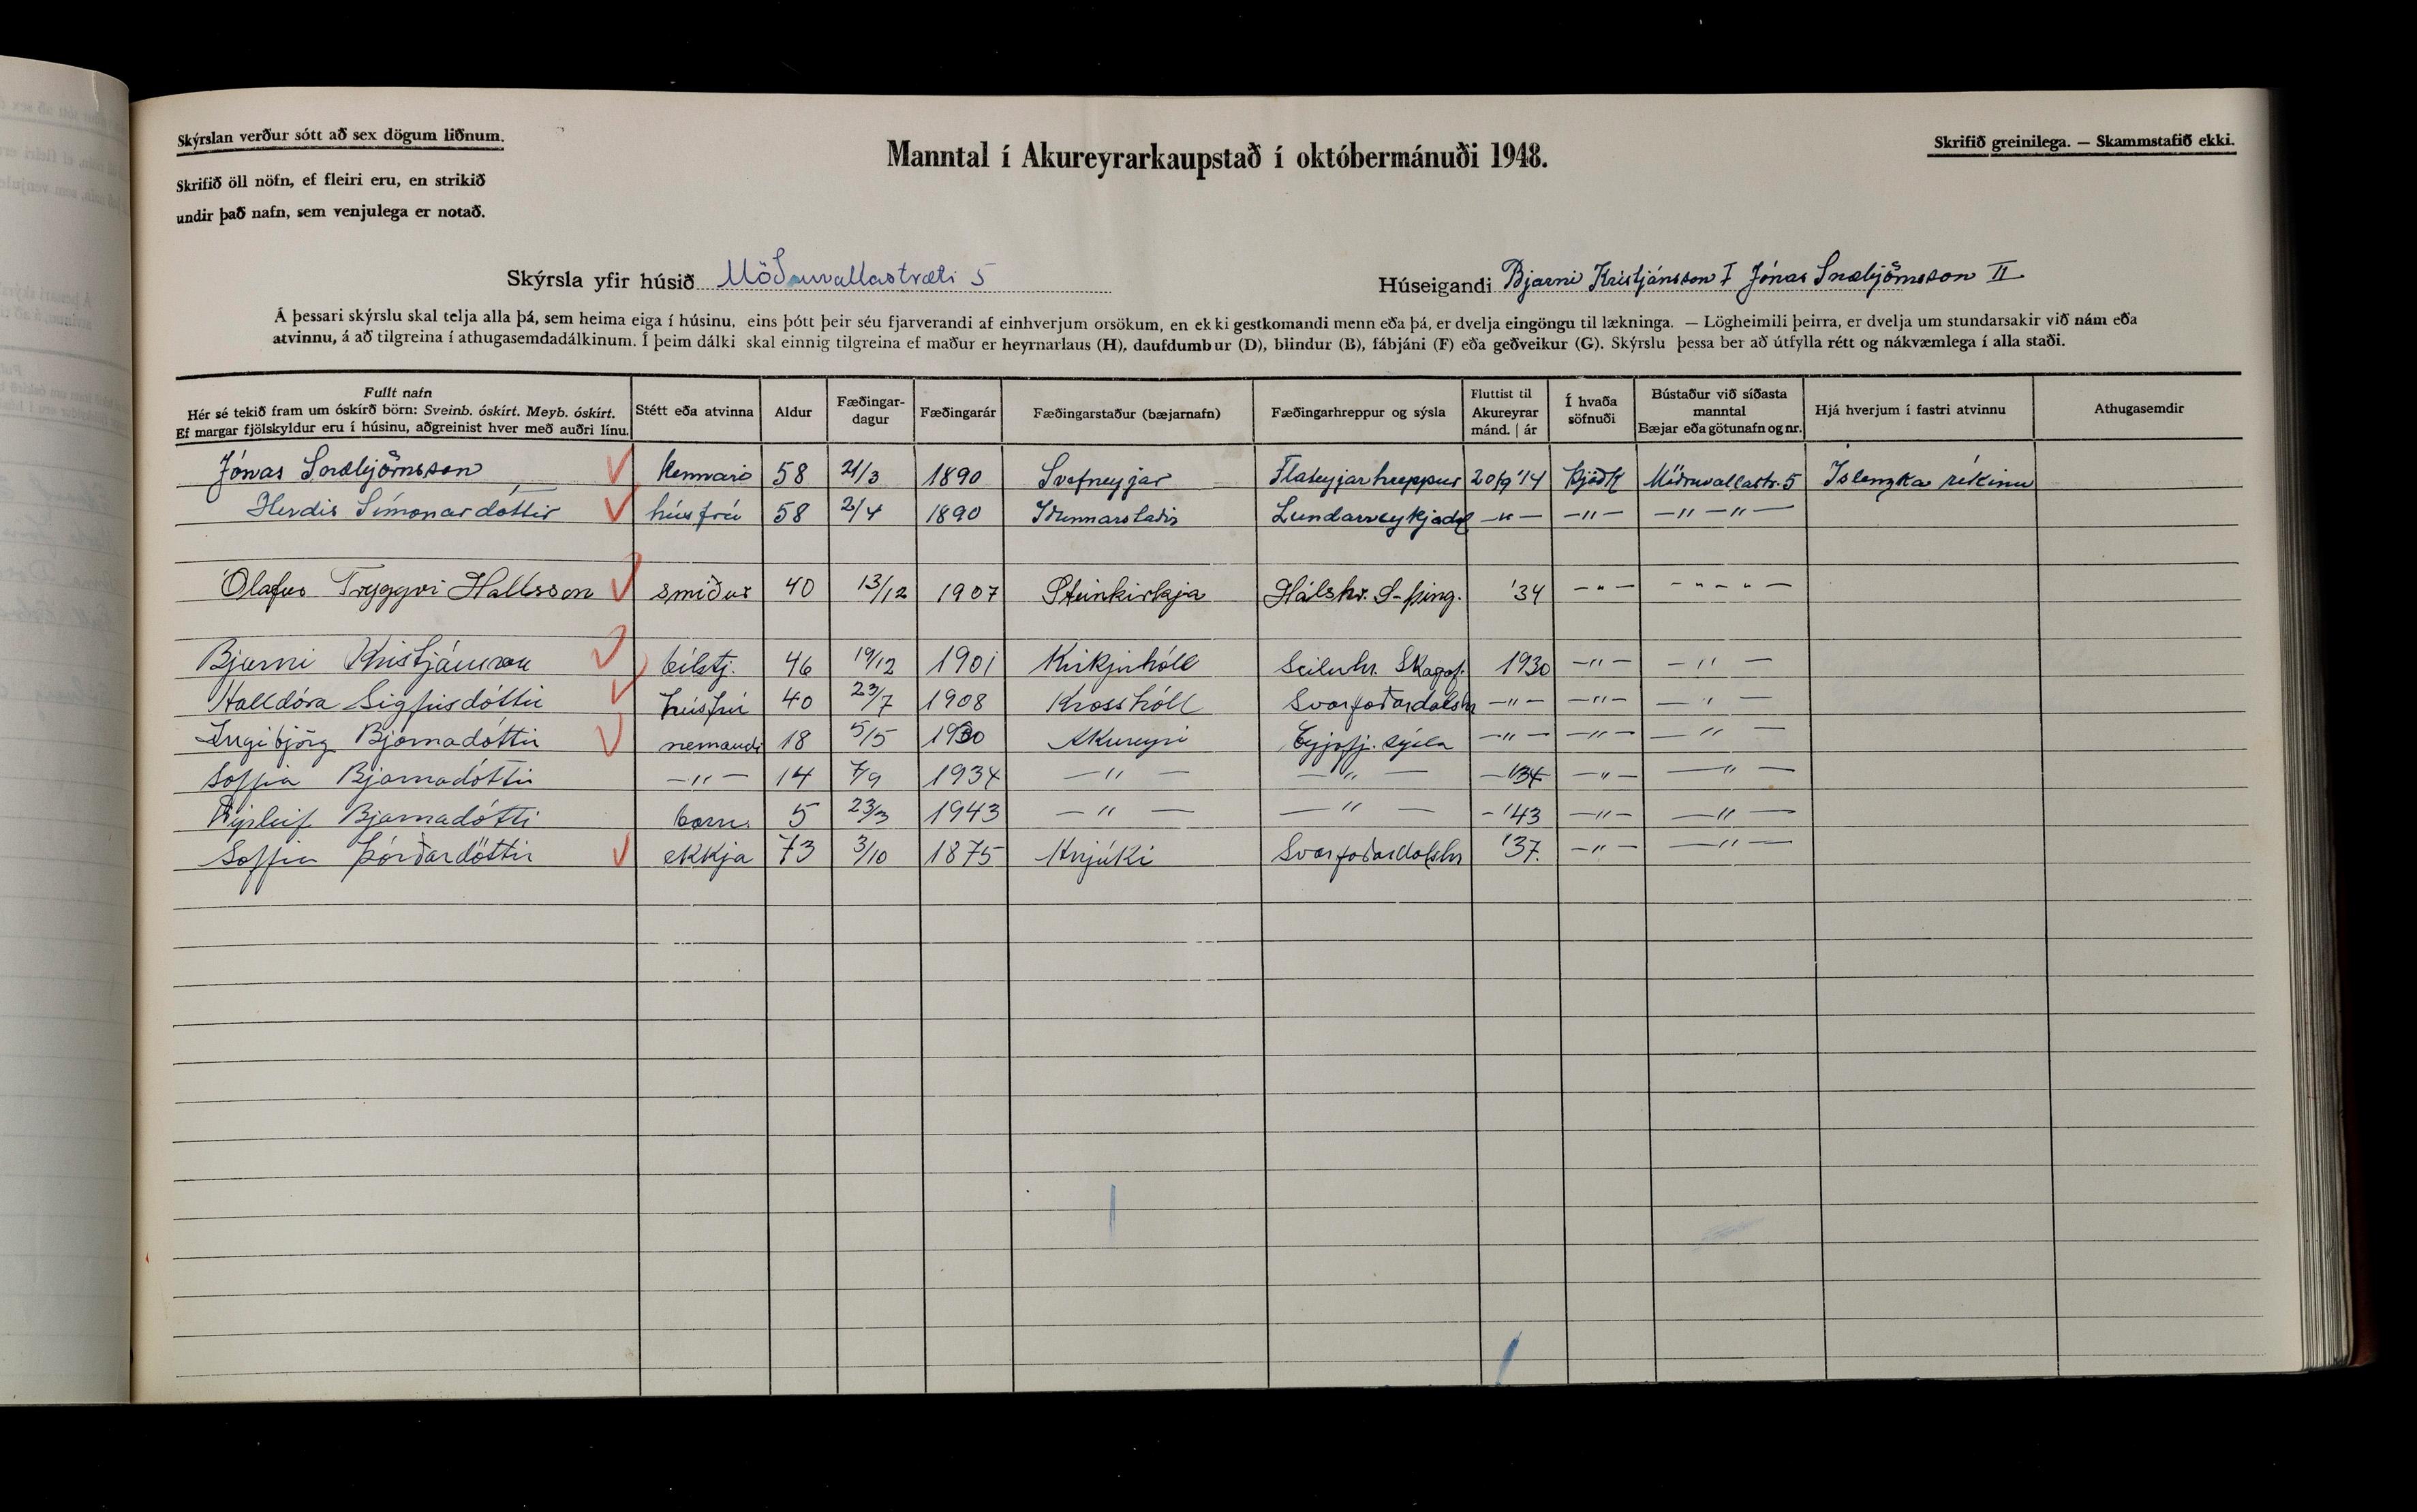 Skýrslan verður sótt að sex dögum liðnum.
Skrifið öll nöfn, ef fleiri eru, en strikið
undir það nafn, sem venjulega er notað.
Manntal í Akureyrarkaupstað í októbermánuði 1948.
Skrifið greinilega. — Skammstafið ekki.
Skýrsla yfir húsið Möðruvallastræti 5
Húseigandi Bjarni Kristjánsson I Jónas Snæbjörnsson II
Á þessari skýrslu skal telja alla þá, sem heima eiga í húsinu, eins þótt þeir séu fjarverandi af einhverjum orsökum, en ekki gestkomandi menn eða þá, er dvelja eingöngu til lækninga. — Lögheimili þeirra, er dvelja um stundarsakir við nám eða
atvinnu, á að tilgreina í athugasemdadálkinum. Í þeim dálki skal einnig tilgreina ef maður er heyrnarlaus (H), daufdumbur (D), blindur (B), fábjáni (F) eða geðveikur (G). Skýrslu þessa ber að útfylla rétt og nákvæmlega í alla staði.
Fullt nafn
Hér sé tekið fram um óskírð börn: Sveinb. óskírt. Meyb. óskírt.
Ef margar fjölskyldur eru í húsinu, aðgreinist hver með auðri línu.
Stétt eða atvinna
Aldur
Fæðingar-
dagur
Fæðingarár
Fæðingarstaður (bæjarnafn)
Fæðingarhreppur og sýsla
Fluttist til
Akureyrar
mánd. | ár
Í hvaða
söfnuði
Bústaður við síðasta
manntal
Bæjar eða götunafn og nr.
Hjá hverjum í fastri atvinnu
Athugasemdir
Jónas Snæbjörnsson kennari 58 21/3 1890 Svefneyjar Flateyjarhreppur 20/9 '14 Þjóðk Möðruvallastr. 5 Íslenzka ríkinu
Herdís Símonardóttir húsfrú 58 2/4 1890 Iðunnarstaðir Lundarreykjadal —"— —"— —"—"—
Ólafur Tryggvi Hallsson smiður 40 13/12 1907 Steinkirkja Hálshr. S-Þing. '34 —"— —"—"—
Bjarni Kristjánsson bílstj. 46 19/12 1901 Kirkjuhóll Seiluhr. Skagaf. 1930 —"— —"—
Halldóra Sigfúsdóttir húsfrú 40 23/7 1908 Krosshóll Svarfaðardalshr —"— —"— —"—
Ingibjörg Bjarnadóttir nemandi 18 5/5 1930 Akureyri Eyjafj. sýsla —"— —"— —"—
Soffía Bjarnadóttir —"— 14 7/9 1934 —"— —"— —'34 —"— —"—
Bjarnadótti barn. 5 23/3 1943 —"— —"— —'43 —"— —"—
Soffía Þórðardóttir ekkja 73 3/10 1875 Hnjúki Svarfaðardalshr '37. —"— —"—